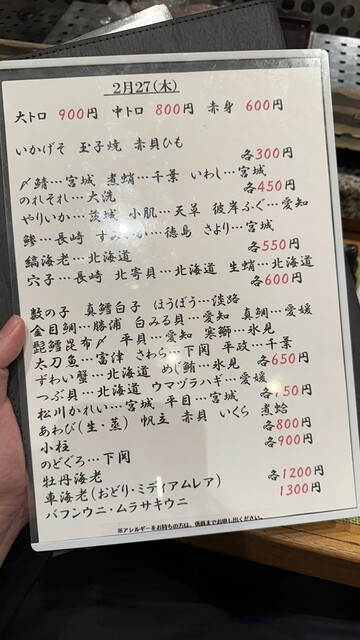 2月27(木)
大トロ 900円 中トロ 800円 赤身 600円
いかげそ 玉子焼 赤貝ひも
各300円
〆鯖…宮城 煮蛸…千葉 いわし…宮城
のれそれ…大洗
各450円
やりいか…茨城 小肌…天草 彼岸ふぐ…愛知
鯵…長崎 徳島 さより…宮城
各550円
縞海老…北海道
穴子…長崎 北寄貝…北海道 生蛸…北海道
各600円
数の子 真鱈白子 ほうぼう…淡路
金目鯛…勝浦 白みる貝…愛知 真鯛…愛媛
髭鱈昆布〆 平貝…愛知 寒鰤…氷見
太刀魚…富津 さわら…下関 平政…千葉
ずわい蟹…北海道 めじ鮪…氷見
各650円
つぶ貝…北海道 ウマヅラハギ…愛媛
松川かれい…宮城 平目…宮城
各750円
あわび(生・蒸) 帆立 赤貝 いくら 煮蛤
各800円
小柱
各900円
のどぐろ…下関
牡丹海老
各1200円
車海老(おどり・ミディアムレア)
1300円
バフンウニ・ムラサキウニ
※アレルギーをお持ちの方は、係員までお申し出ください。